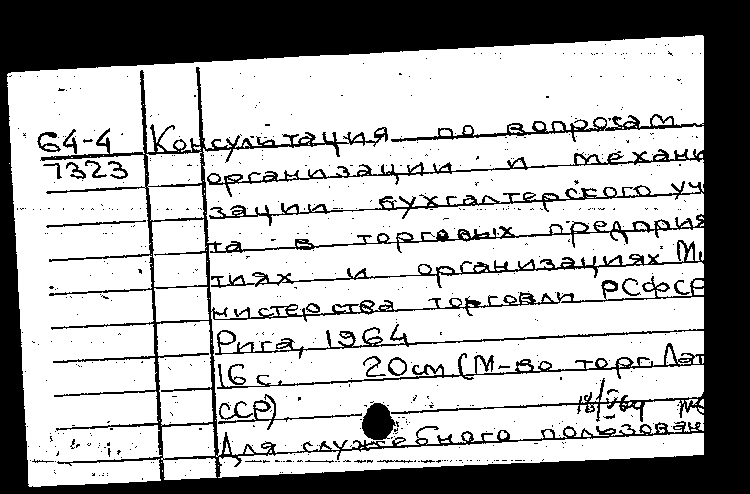 64-4 Консультация по вопросам
7323 организации и механи
зации бухгалтерского уч
та в торговых предприя
тиях и организациях Ми
нистерства торговли РСФСР
Рига, 1964
16 с. 20 см (М-во торг. Лат
ССР)
18/V64
Для служебного пользован